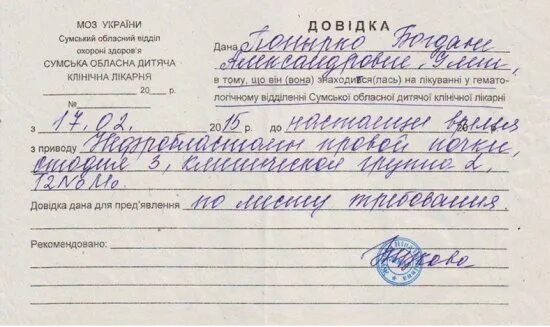 МОЗ УКРАЇНИ
Сумський обласний відділ
охорони здоров'я
СУМСЬКА ОБЛАСНА ДИТЯЧА
КЛІНІЧНА ЛІКАРНЯ
20 р.
№
ДОВІДКА
Дана Понырко Богдане
Александровне,
в тому, що він (вона) знаходився(лась) на лікуванні у гемато-
логічному відділенні Сумської обласної дитячої клінічної лікарні
з 17.02. 2015 р. до настоящее время
з приводу Нефробластомы правой почки,
стадия 3, клиническая группа 2,
T2N0M0.
Довідка дана для пред'явлення по месту требования.
Рекомендовано: